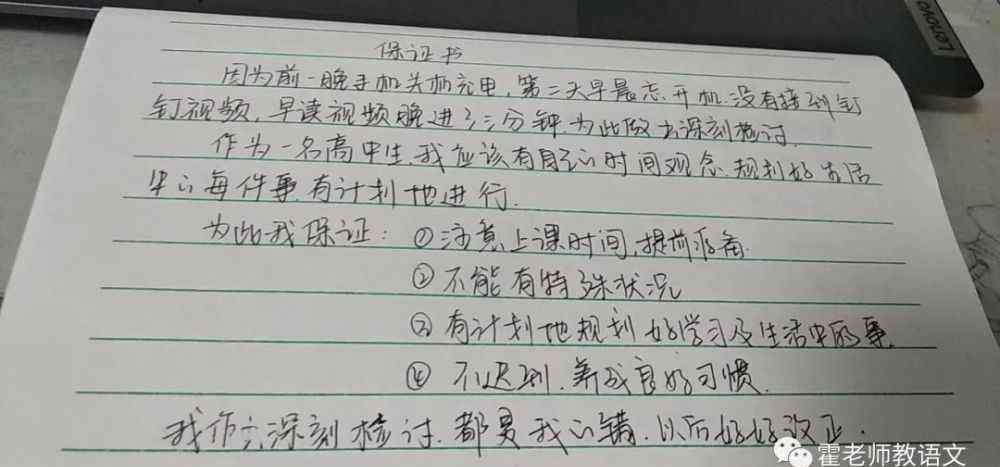 保证书
因为前一晚手机关机充电,第二天早晨忘开机.没有接到钉
钉视频,早读视频晚进了三分钟.为此做出深刻检讨.
作为一名高中生我应该有自己的时间观念.规划好生活
中的每件事.有计划地进行.
为此我保证: ①注意上课时间,提前准备.
②不能有特殊状况
③有计划地规划好学习及生活中的事.
④不迟到.养成良好习惯.
我作出深刻检讨.都是我的错.以后好好改正.
霍老师教语文
Lenovo